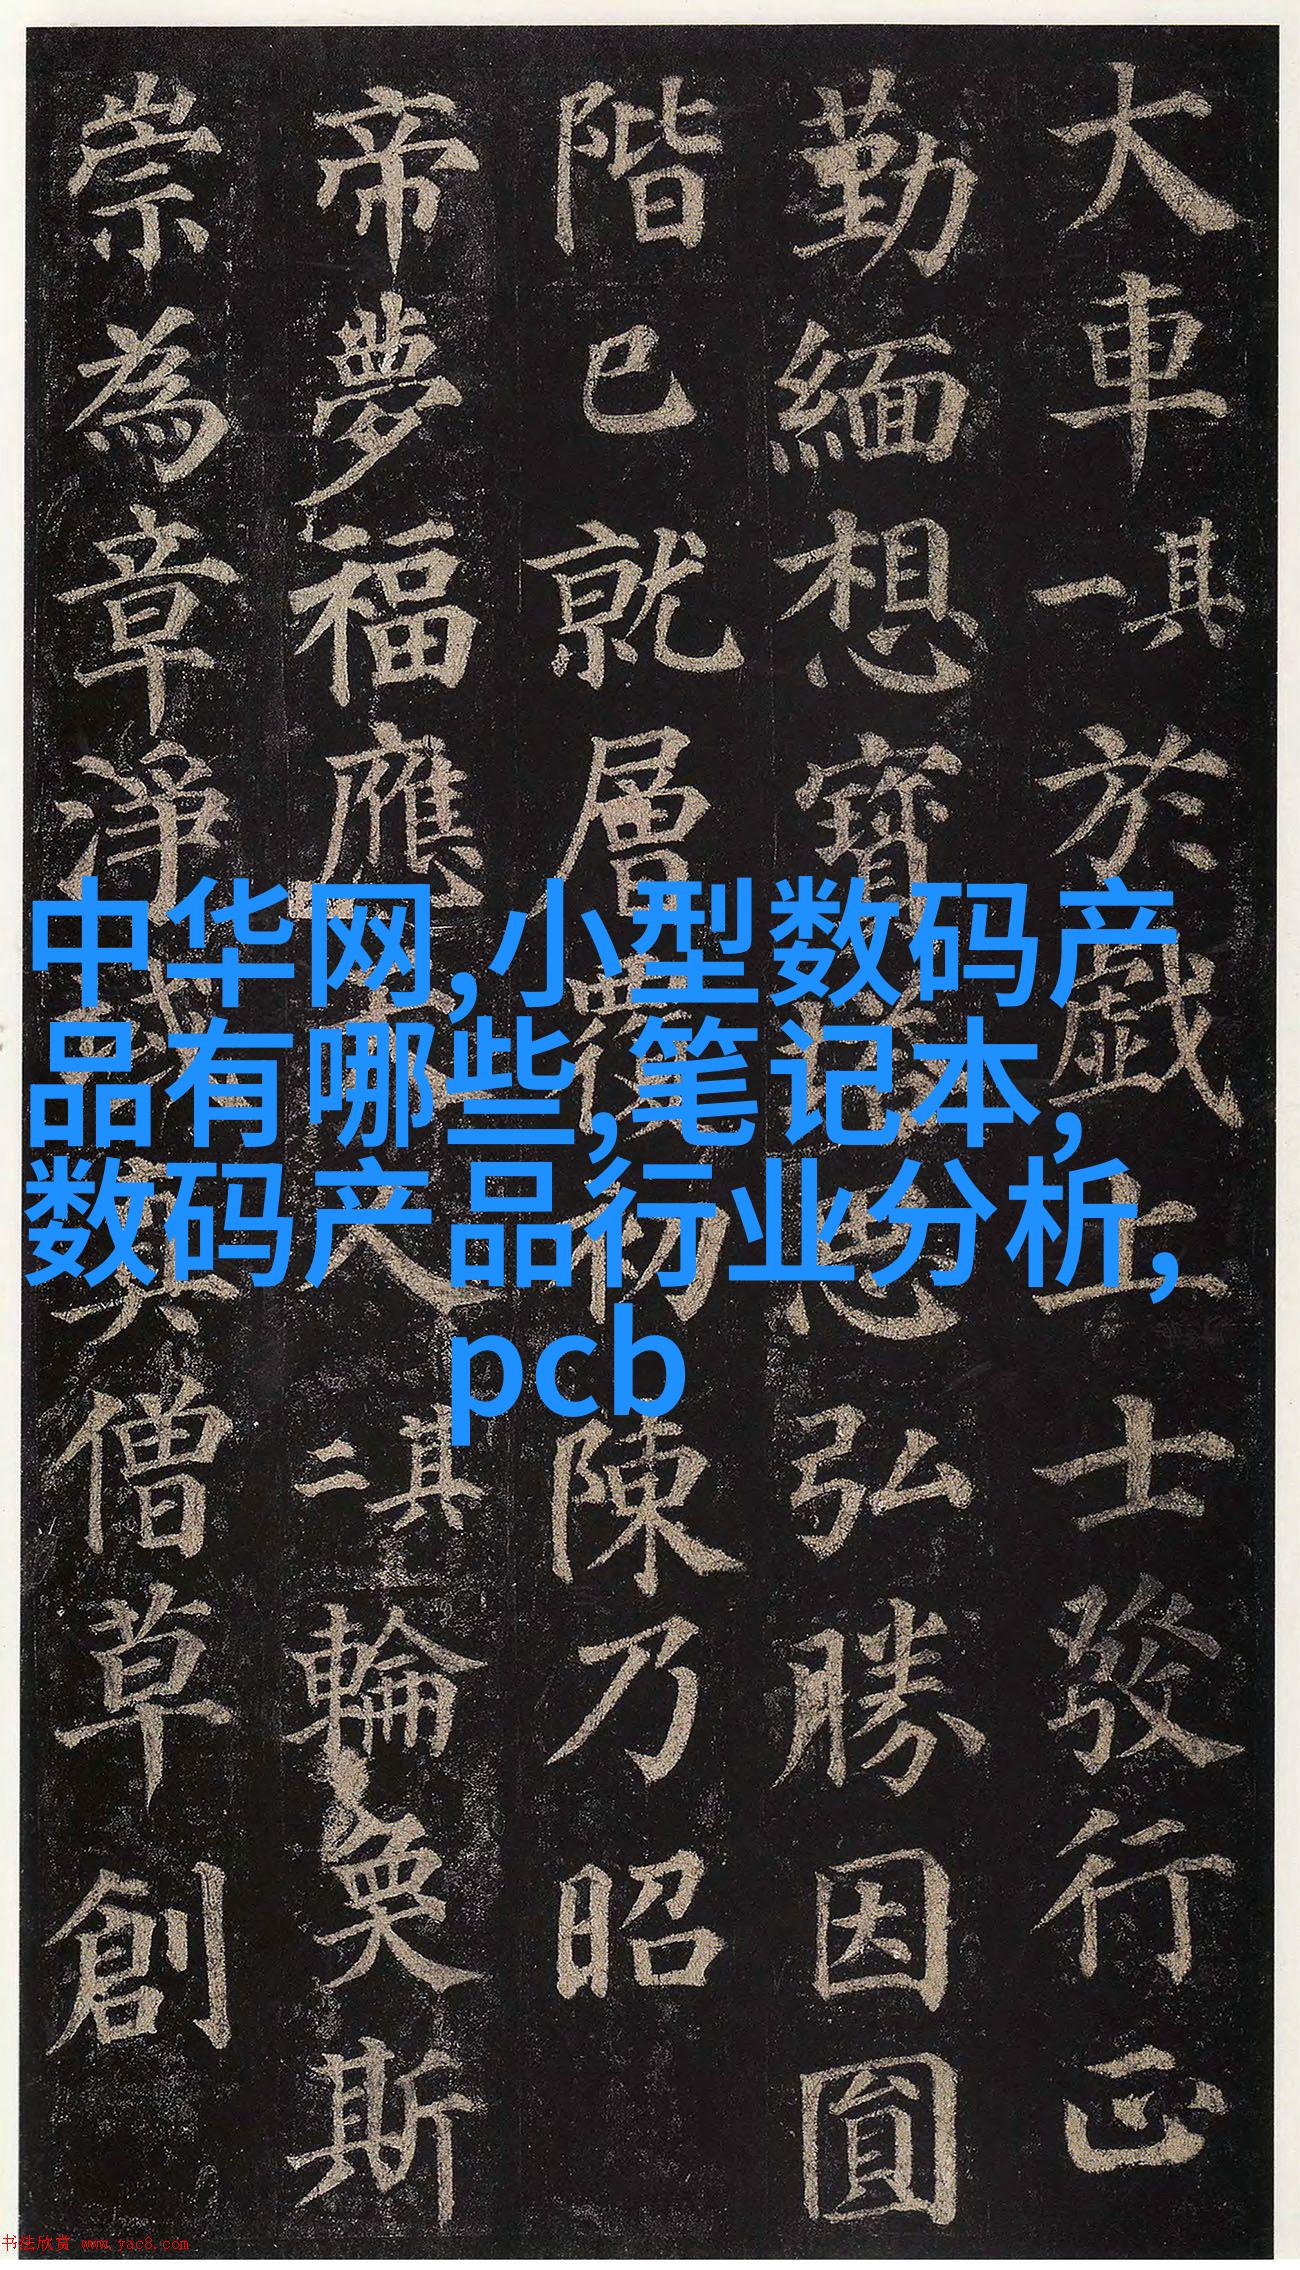 大車其一於戲上士發行正
勤緬想寶塔思弘勝因圓
階已就層覆初陳乃昭
帝夢福應天人其二輪奐斯
崇為章淨域真僧草創
中华网,小型数码产
品有哪些,笔记本,
数码产品行业分析,
pcb
书法欣赏 www.yac8.com